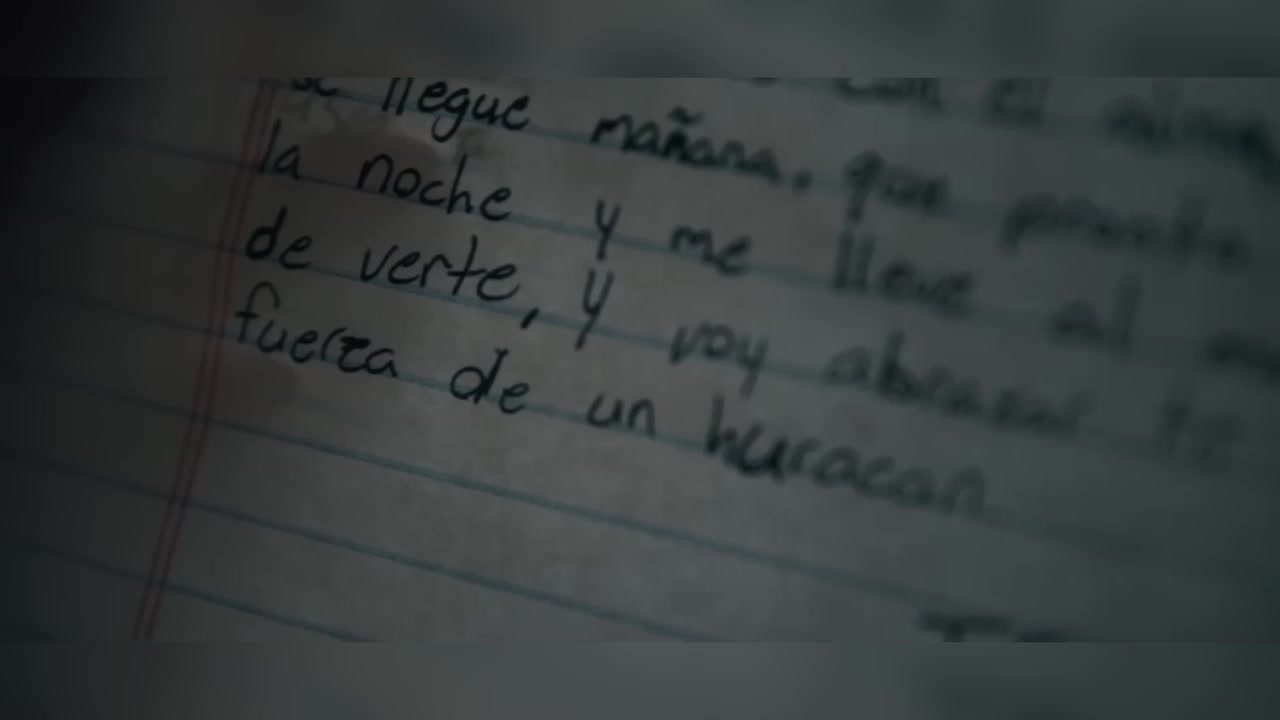 se llegue mañana, que pronto
la noche y me lleve al
de verte, y voy abrazar te
fuerza de un huracan